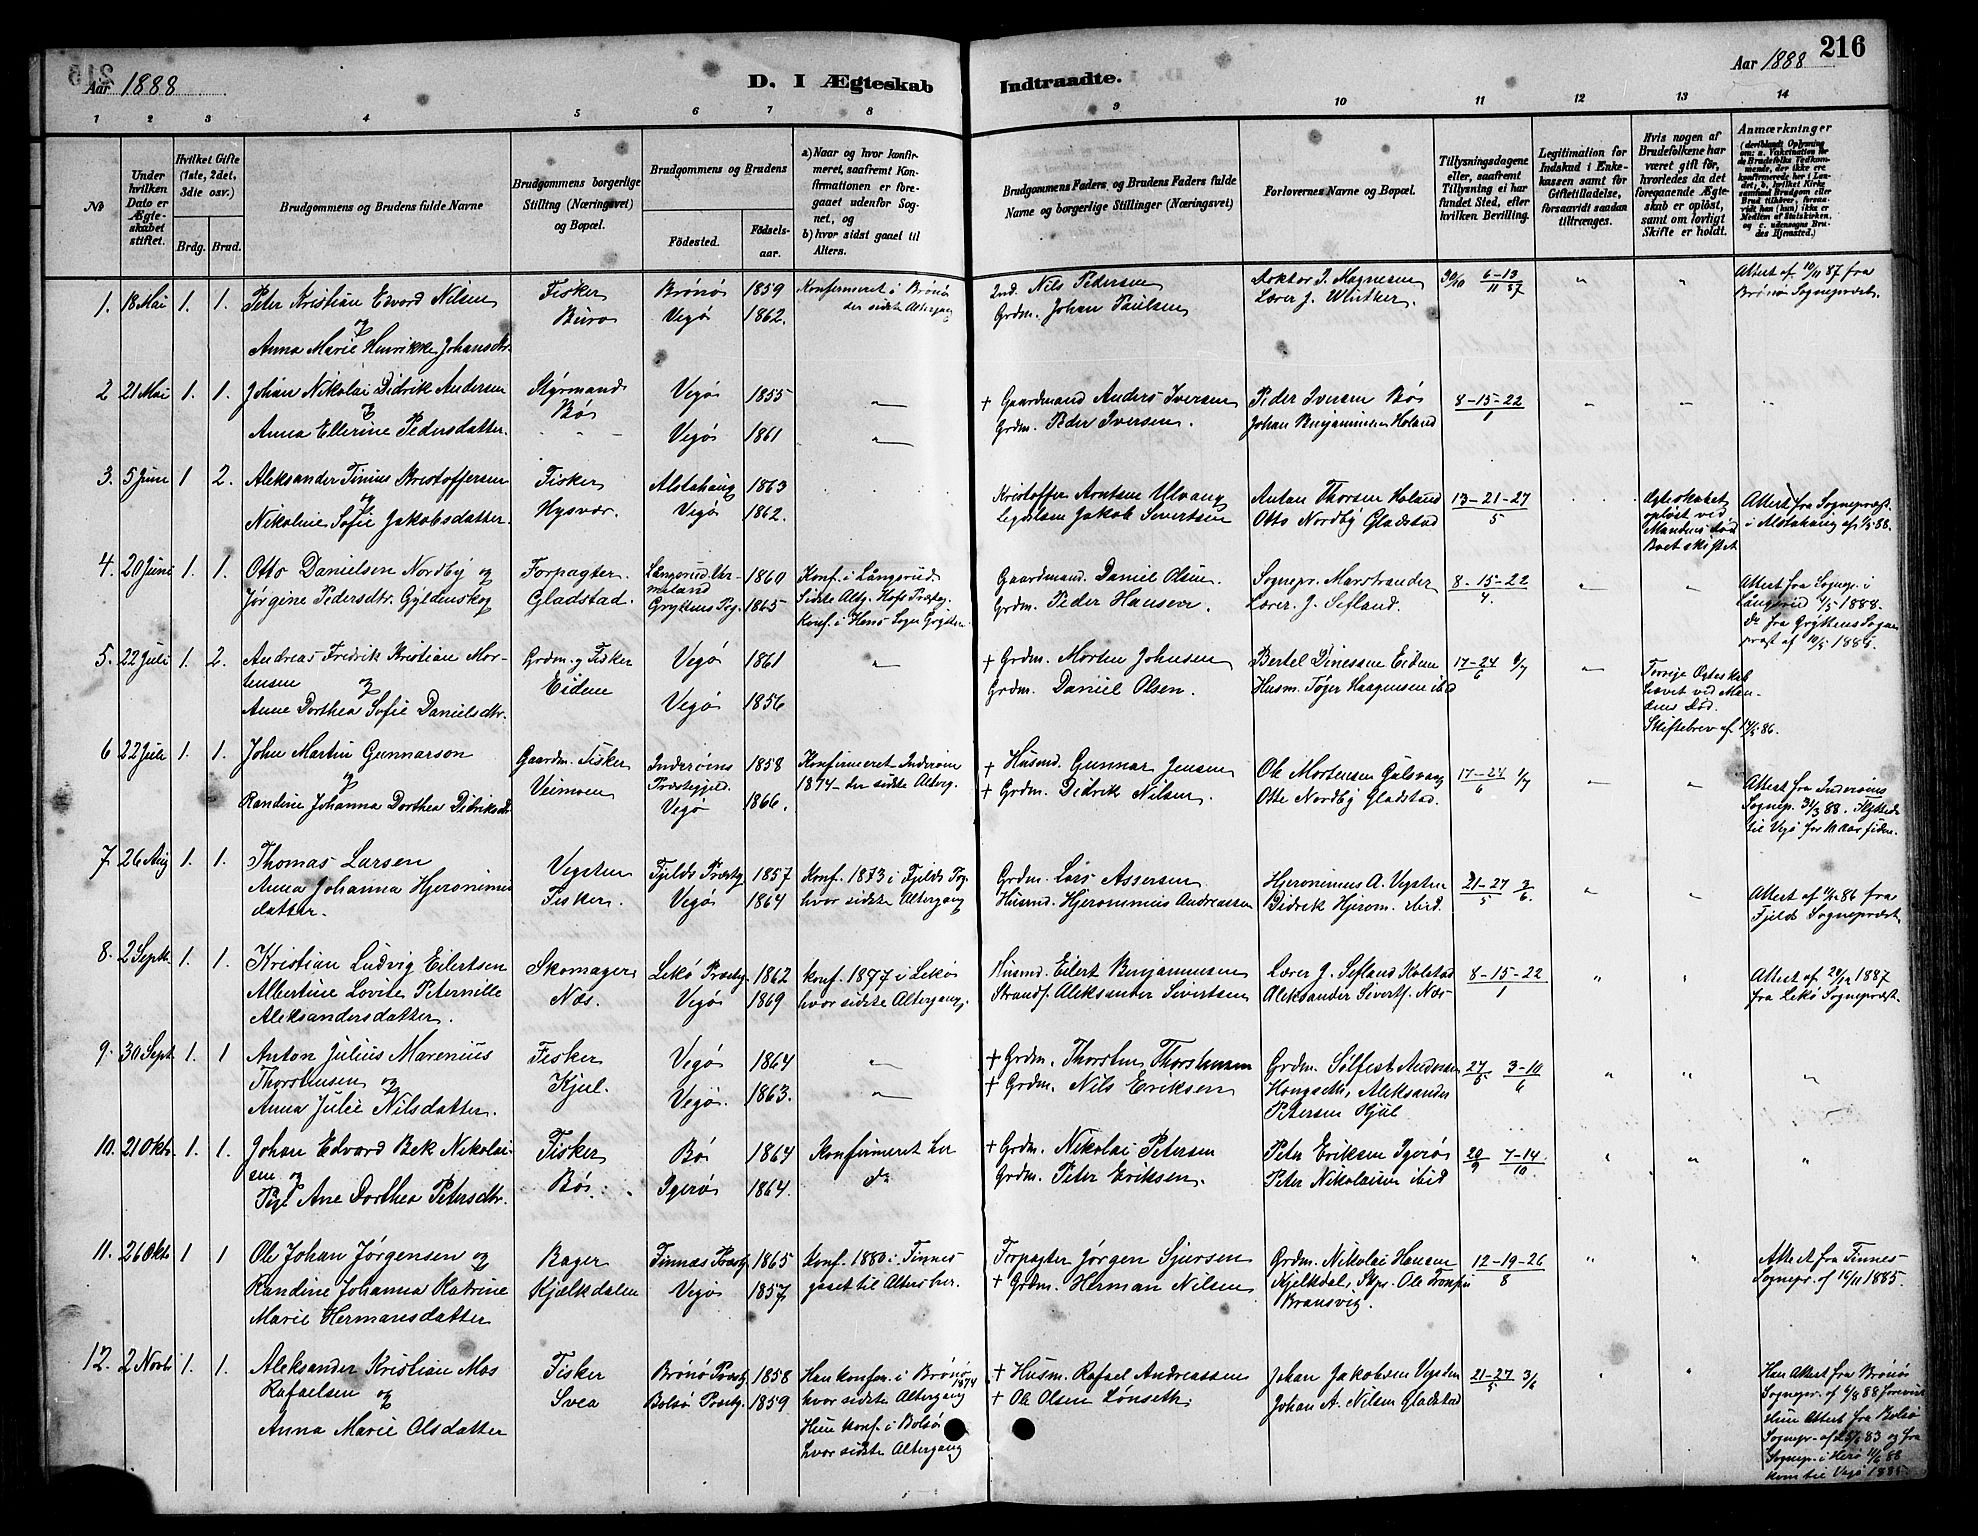 216
Aar 1888
D. I Ægteskab Indtraadte.
Aar 1888
1 2 3 4 5 6 7 8 9 10 11 12 13 14
No
Under hvilken Dato er Ægteskabet stiftet.
Hvilket Gifte (1ste, 2det, 3die osv.)
Brdg. Brud.
Brudgommens og Brudens fulde Navne
Brudgommens borgerlige Stilling (Næringsvei) og Bopæl.
Brudgommens og Brudens
Fødested.
Fødselsaar.
a) Naar og hvor konfirmeret, saafremt Konfirmationen er foregaaet udenfor Sognet, og
b) hvor sidst gaaet til Alters.
Brudgommens Faders og Brudens Faders fulde Navne og borgerlige Stillinger (Næringsvei)
Forlovernes Navne og Bopæl.
Tillysningsdagene eller, saafremt Tillysning ei har fundet Sted, efter hvilken Bevilling.
Legitimation for Indskud i Enkekassen samt for Giftetilladelse, forsaavidt saadan tiltrænges.
Hvis nogen af Brudefolkene har været gift før, hvorledes da det foregaaende Ægteskab er opløst, samt om lovligt Skifte er holdt.
Anmærkninger
1. 18 Mai 1. 1. Peter Kristian Edvord Nilsen Fisker Brönö 1859 Konfirmeret i Brönö 2nd. Nils Pedersen Doktor J. Magnesen 30/10 6-13/11 87 " " Attest af 10/11 87 fra
og Buro Vegö 1862. der sidste Altergang Grdm. Johan Paulsen Lærer J. Brönö Sognepræst.
Anna Marie Henrikke Johansdtr.
2 21 Mai 1. 1. Johan Nikolai Didrik Andersen Styrmand Vegö 1855 " + Gaardmand Anders Iversen Peder Ivensen Bös 8-15-22/1 " " "
og Bös
Anna Ellerine Pedersdatter. Vegö 1861 " Grdm. Peder Iversen. Johan Benjaminsen Holand
3. 5 Juni 1 2. Aleksander Tinius Kristoffersen Fisker Alstahaug 1863 Kristoffer Arntsen Ulvang Anton Thorsen Holand 13-21-27/5 Ægteskabet Attest fra Sognepræst
og Hysvær. Vegö 1862. Jakob Sivertsen Otto Nordby Gladstad opløst ved i Alstahaug af 1/5 88.
Nikoline Sofie Jakobsdatter. Mandens død
Boet skiftet
4. 20 Juni 1. 1. Otto Danielsen Nordby og Forpagter. Långsrud Vermeland 1860 Konf. i Långsrud Gaardmand. Daniel Olsen. Sognepr. Marstrander 8-15-22/4. " " Attest fra Sognep. i
Jörgine Pedersdtr. Gyldenskog Gladstad. Gryttens Pg. 1865 Sidste Altg. Hofs Præstg. Grdm. Peder Hansen. Lærer. J. Sefland. Långsrud 4/5 1888.
Konf. i Hens Sogn Grytten do fra Gryttens Sognepræst af 10/5 1888.
5. 22 Juli 1. 2. Andreas Fredrik Kristian Mor- Grdm. og Fisker Vegö 1861 " + Grdm. Morten Johnsen Bertel Dinessen Eidem 17-24/6 1/7 " Forrige Ægteskab
tensen og Eidem hævet ved Man-
Anne Dorthea Sofie Danielsdtr. Vegö 1856 Grdm. Daniel Olsen. Husm. Töger Haagensen ibid dens Död.
Skiftebrev af 14/5 86.
6 22 Juli 1. 1. John Martin Gunnarson Gaardm. Fisker Inderöens 1858 Konfirmeret Inderöen + Husmd. Gunnar Jensen Ole Mortensen Gulsvaag 17-24/6 1/7 " " Attest fra Inderöens
og Veimoen Præstegjeld. 1874 - der sidste Alterg. Sognep. 31/3 88. Flyttede
Randine Johanna Dorthea Didriksdtr Vegö 1866. + Grdm. Didrik Nilsen. Otto Nordby Gladstad. til Vegö for 10 aar siden.
7. 26 Aug 1. 1. Thomas Larsen Vegsten Fjelds Præstg. 1857 Konf. 1873 i Fjelds Pg. Grdm. Lars Assersen Hjeronimus A. Vegsten 21-27/5 3/6. " " Attest af 86 fra
Anna Johanna Hjeronimus Fisker. Vegö 1864 hvor sidste Altergang Husmd. Hjeronimus Andreassen Didrik Hjeron. ibid. Fjelds Sognepræst
datter.
8. 2 Septb. 1. 1. Kristian Ludvig Eilertsen Skomager Lekö Præstg. 1862 konf. 1877 i Lekö Husmd. Eilert Benjaminsen Lærer J. Sefland Kolstad 8-15-22/1 " " Attest af 29/12 1887
Albertine Lovite Peternille Næs. Vegö 1869 hvor sidste Altergang. Strands. Aleksander Sivertsen Aleksander Siverts. Næs fra Lekö Sognepræst.
Aleksandersdatter.
9. 30 Sept. 1. 1 Anton Julius Marenius Fisker Vegö 1864 " + Grdm. Thorsten Thorstensen Grdm. Sölfest Andersen 27/5 3-10/6 " " "
Thorstensen og Kjul. Aleksander
Anna Julie Nilsdatter. Vegö. 1863. " + Grdm. Nils Eriksen Petersen Kjul
10. 21 Oktr. 1. 1. Johan Edvard Bek Nikolai- Fisker Bö 1864 Konfirmeret her + Grdm. Nikolai Petersen Peter Eriksen Igerö 20/9 7-14/10. " " "
sen og Bös. Igerö 1864. do Grdm. Peter Eriksen. Peter Nikolaisen ibid
Pige Ane Dorthea Petersdtr.
11. 26 Oktr 1 1 Ole Johan Jörgensen og Bager Tinnæs Præstg. 1865 Konf. 1880 i Tinnes Forpagter Jörgen Sjursen Grdm. Nikolai Hansen 12-19-26/8 " " Attest fra Tinnes
Randine Johanna Katrine Kjælkdalen Vegö 1857 gaaet til Alters her. + Grdm. Herman Nilsen Kjelkdal, Skpr. Ole Sognepr. af 16/11 1885.
Marie Hermansdatter Bransvig.
12. 2 Novbr. 1. 1. Aleksander Kristian Mos Fisker Brönö Præstg. 1858 Han konfr. i Brönö 1874 + Husm. Rafael Andreassen Johan Jakobsen Vegsten 21-27/5 3/6 " " Han Attest fra Brönö
Rafaelsen og Svea Bolsö Præstg. 1859 hvor sidste Altergang + Ole Olsen Lönseth Johan A. Nilsen Gladstad Sognepr. af 6/8 88
Anna Marie Olsdatter Hun Konf. i Bolsö Hun Attest fra Bolsö
hvor sidste Altergang Sognepr. af 25/3 83 og fra
Sognep. i Herö 11/6 88
kom til Vegö 1885.